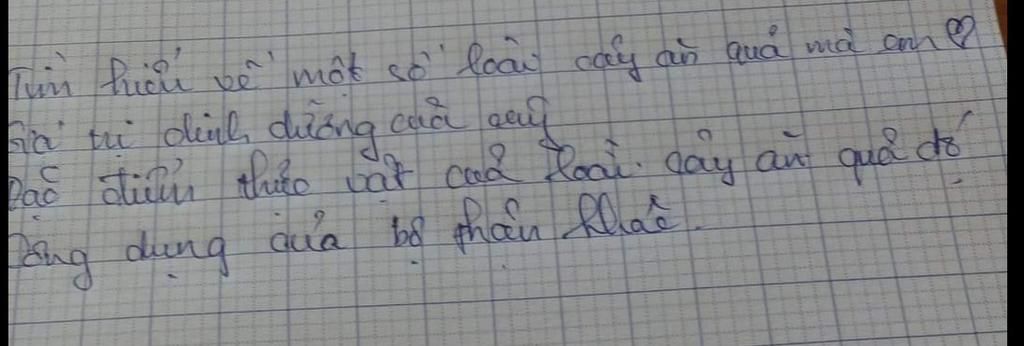 Tìm hiểu về một số loài cây ăn quả mà em ♡
Giá trị dinh dưỡng của cây
Đặc điểm thực vật của loài cây ăn quả đó
Dạng dụng của bộ phận khác.